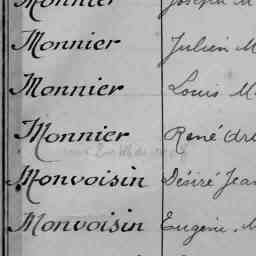 Monnier Joseph M
Monnier Julien M
Monnier Louis M
Monnier René
Monvoisin Désiré Jean
Monvoisin Eugène M